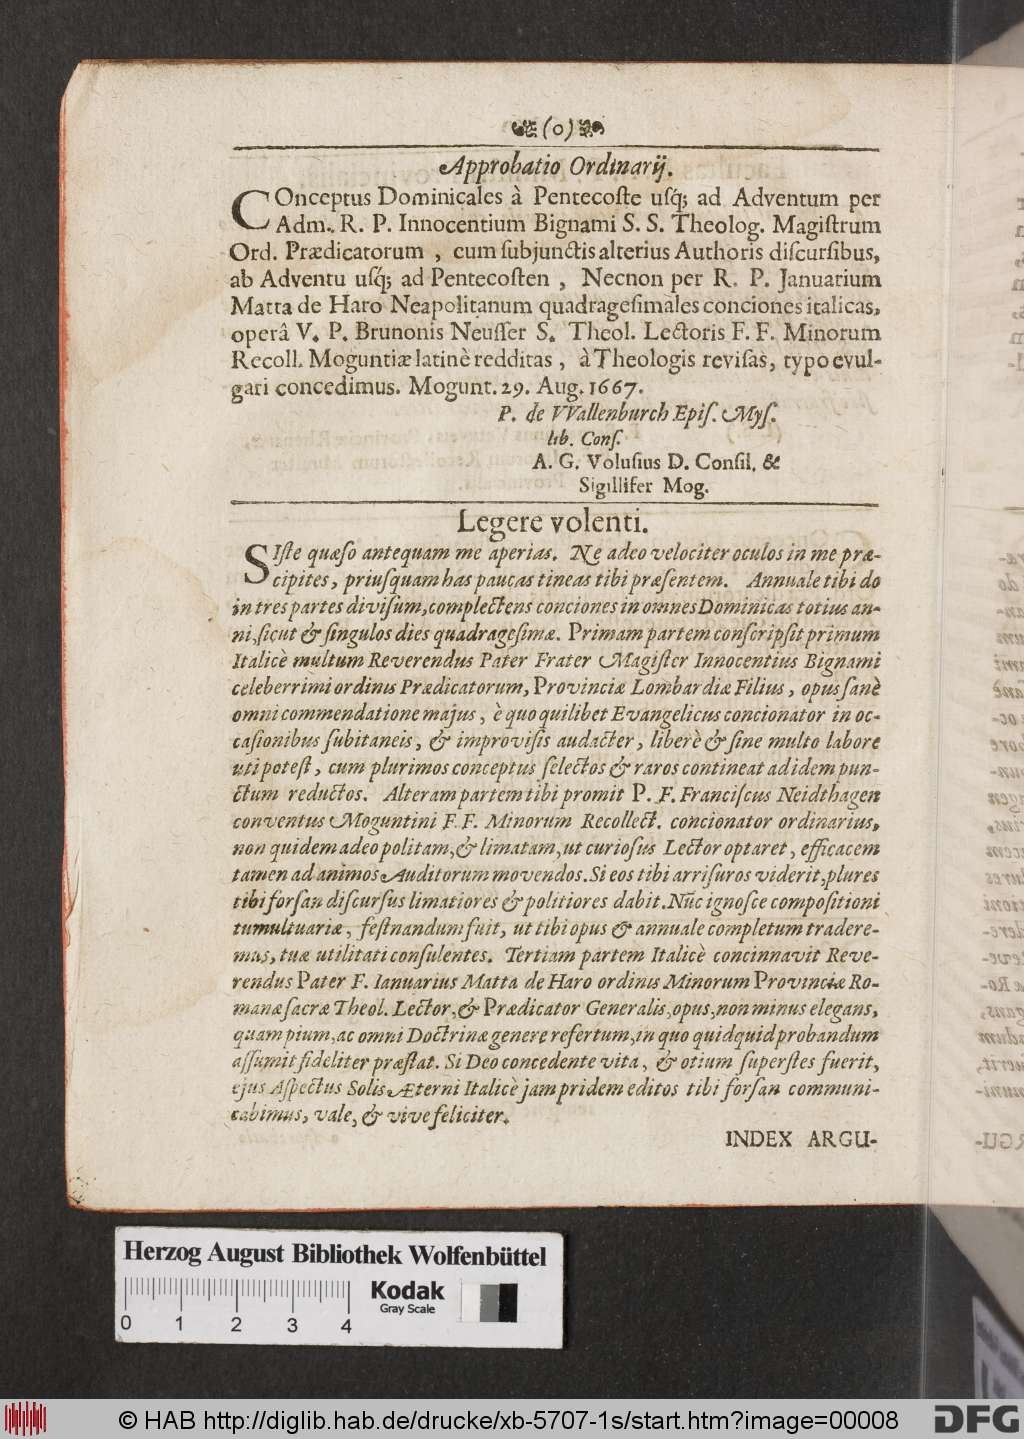 (0)
Approbatio Ordinarij.
COnceptus Dominicales à Pentecoste usq́; ad Adventum per
Adm. R. P. Innocentium Bignami S. S. Theolog. Magistrum
Ord. Prædicatorum , cum subjunctis alterius Authoris discursibus,
ab Adventu usq́; ad Pentecosten , Necnon per R. P. Januarium
Matta de Haro Neapolitanum quadragesimales conciones italicas,
operâ V. P. Brunonis Neusser S. Theol. Lectoris F. F. Minorum
Recoll. Moguntiæ latinè redditas , à Theologis revisas, typo evul-
gari concedimus. Mogunt. 29. Aug. 1667.
P. de VVallenburch Epis. Mys.
lib. Cons.
A. G. Volusius D. Consil. &
Sigillifer Mog.
Legere volenti.
SIste quæso antequam me aperias. Ne adeo velociter oculos in me præ-
cipites, priusquam has paucas tineas tibi præsentem. Annuale tibi do
in tres partes divisum, complectens conciones in omnes Dominicas totius an-
ni, sicut & singulos dies quadragesimæ. Primam partem conscripsit primum
Italicè multum Reverendus Pater Frater Magister Innocentius Bignami
celeberrimi ordinis Prædicatorum, Provinciæ Lombardiæ Filius, opus sanè
omni commendatione majus, è quo quilibet Evangelicus concionator in oc-
casionibus subitaneis, & improvisis audacter, liberè & sine multo labore
uti potest, cum plurimos conceptus selectos & raros contineat ad idem pun-
ctum reductos. Alteram partem tibi promit P. F. Franciscus Neidthagen
conventus Moguntini F. F. Minorum Recollect. concionator ordinarius,
non quidem adeo politam, & limatam, ut curiosus Lector optaret, efficacem
tamen ad animos Auditorum movendos. Si eos tibi arrisuros viderit, plures
tibi forsan discursus limatiores & politiores dabit. Nũc ignosce compositioni
tumultuariæ, festinandum fuit, ut tibi opus & annuale completum tradere-
mus, tuæ utilitati consulentes. Tertiam partem Italicè concinnavit Reve-
rendus Pater F. Ianuarius Matta de Haro ordinis Minorum Provinciæ Ro-
manæ sacræ Theol. Lector, & Prædicator Generalis, opus, non minus elegans,
quam pium, ac omni Doctrinæ genere refertum, in quo quidquid probandum
assumit fideliter præstat. Si Deo concedente vita, & otium superstes fuerit,
ejus Aspectus Solis Æterni Italicè jam pridem editos tibi forsan communi-
cabimus, vale, & vive feliciter.
INDEX ARGU-
Herzog August Bibliothek Wolfenbüttel
Kodak
Gray Scale
0 1 2 3 4
© HAB http://diglib.hab.de/drucke/xb-5707-1s/start.htm?image=00008
DFG